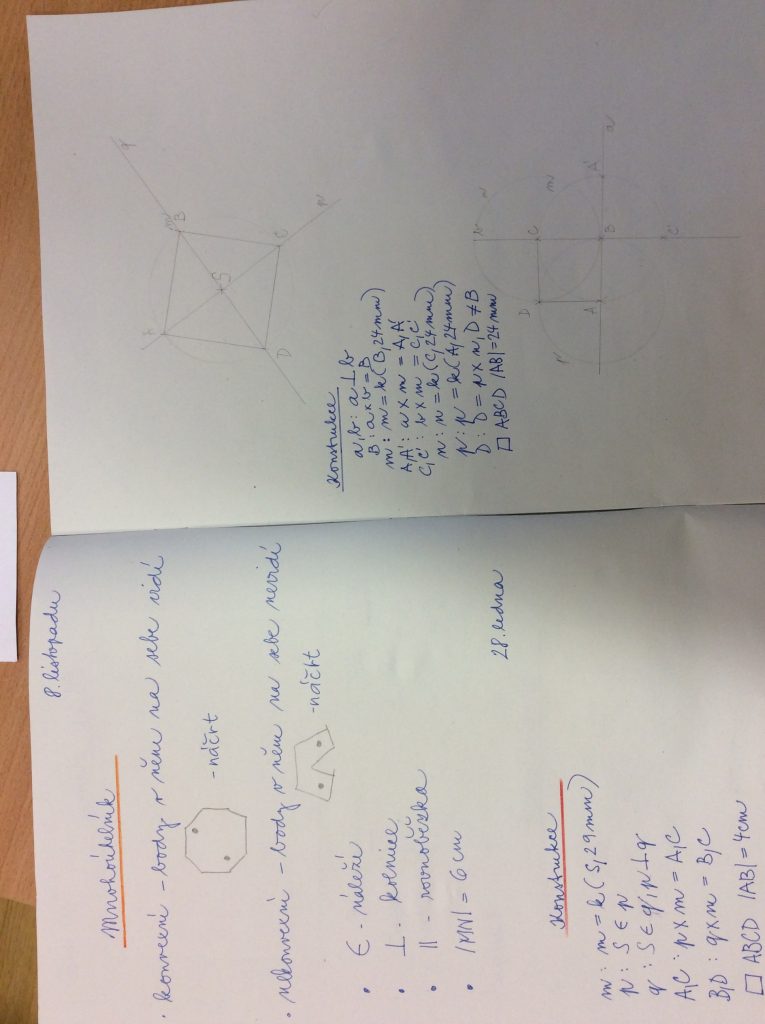 8. listopadu
Mnohoúhelník
• konvexní - body v něm na sebe vidí
- náčrt
• nekonvexní - body v něm na sebe nevidí
- náčrt
• ∈ - náleží
• ⊥ - kolmice
• || - rovnoběžka
• |MN| = 6 cm
28. ledna
Konstrukce
m : m = k(S, 29 mm)
p : S ∈ p
q : S ∈ q, p ⊥ q
A, C : p x m = A, C
B, D : q x m = B, C
□ ABCD |AB| = 4 cm
q
m
B
A
S
C
p
D
Konstrukce
a, b : a ⊥ b
B : a x b = B
m : m = k(B, 24 mm)
A, A' : a x m = A, A'
C, C' : b x m = C, C'
n : n = k(C, 24 mm)
p : p = k(A, 24 mm)
D : D = p x n, D ≠ B
□ ABCD |AB| = 24 mm
b
n
m
a
D
C
p
A
B
A'
C'